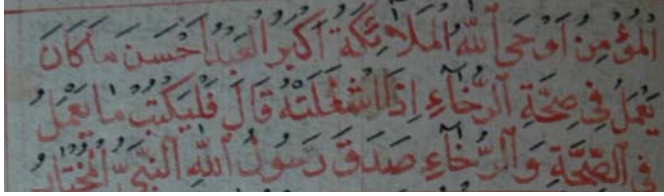 الْمُؤْمِنُ أَوْحَى اللَّهُ الْمَلَائِكَةَ أَكْبَرُ الْعَبْدِ أَحْسَنَ مَا كَانَ
يَعْمَلُ فِي صِحَّةِ الرَّخَاءِ إِذَا اشْتَغَلَتْهُ قَالَ فَلْيَكْتُبْ مَا يَعْمَلُ
فِي الصِّحَّةِ وَالرَّخَاءِ صَدَقَ رَسُولُ اللَّهِ النَّبِيُّ الْمُخْتَارُ